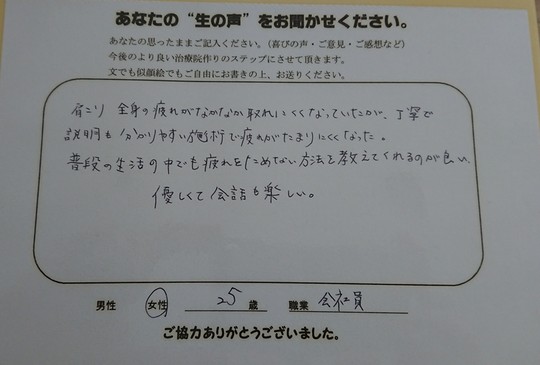 あなたの“生の声”をお聞かせください。
あなたの思ったままご記入ください。（喜びの声・ご意見・ご感想など）
今後のより良い治療院作りのステップにさせて頂きます。
文でも似顔絵でもご自由にお書きの上、お送りください。
肩こり 全身の疲れがなかなか取れにくくなっていたが、丁寧で
説明も分かりやすい施術で疲れがたまりにくくなった。
普段の生活の中でも疲れをためない方法を教えてくれるのが良い。
優しくて会話も楽しい。
男性 女性 25 歳 職業 会社員
ご協力ありがとうございました。